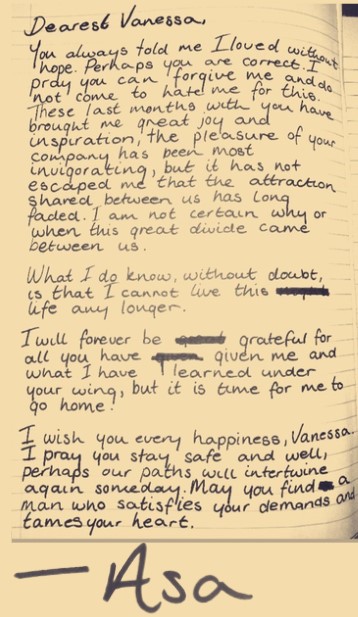 Dearest Vanessa,
You always told me I loved without
hope. Perhaps you are correct. I
pray you can forgive me and do
not come to hate me for this.
These last months with you have
brought me great joy and
inspiration, the pleasure of your
company has been most
invigorating, but it has not
escaped me that the attraction
shared between us has long
faded. I am not certain why or
when this great divide came
between us.
What I do know, without doubt,
is that I cannot live this
life any longer.
I will forever be grateful for
all you have given me and
what I have learned under
your wing, but it is time for me to
go home.
I wish you every happiness, Vanessa.
I pray you stay safe and well,
perhaps our paths will intertwine
again someday. May you find a
man who satisfies your demands and
tames your heart.
— Asa